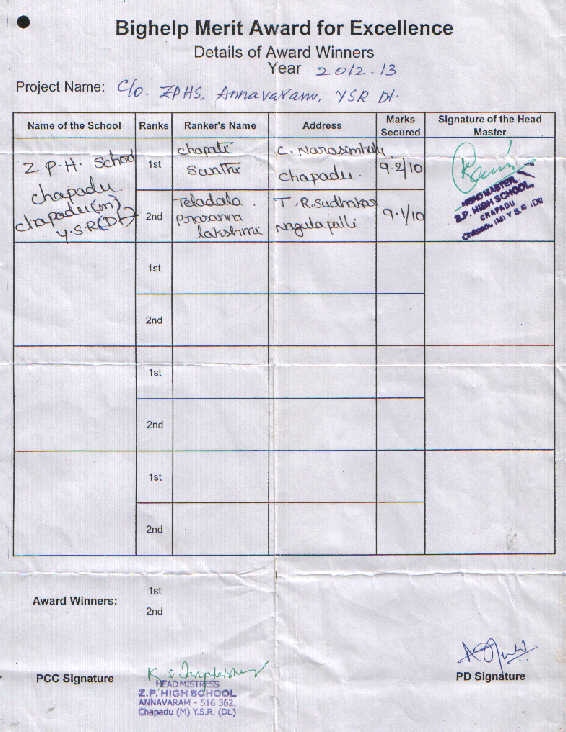 Bighelp Merit Award for Excellence
Details of Award Winners
Year 2012-13
Project Name: C/o. ZPHS, Annavaram, YSR Dt.
Name of the School Ranks Ranker's Name Address Marks Secured Signature of the Head Master
Z P.H. School
chapadu
chapadu(m)
Y.S.R(Dt)
1st chamti C. Narasimhulu 9.2/10
Santhi chapadu.
2nd Peladala . T.R.Sudhakar 9.1/10
prasanna Nagulapalli
lakshmi
HEAD MASTER
Z.P. HIGH SCHOOL
CHAPADU
Chapadu (M) Y.S.R. (Dt)
1st
2nd
1st
2nd
1st
2nd
Award Winners: 1st
2nd
PCC Signature
HEADMISTRESS
Z.P. HIGH SCHOOL
ANNAVARAM - 516 362.
Chapadu (M) Y.S.R. (Dt.)
PD Signature